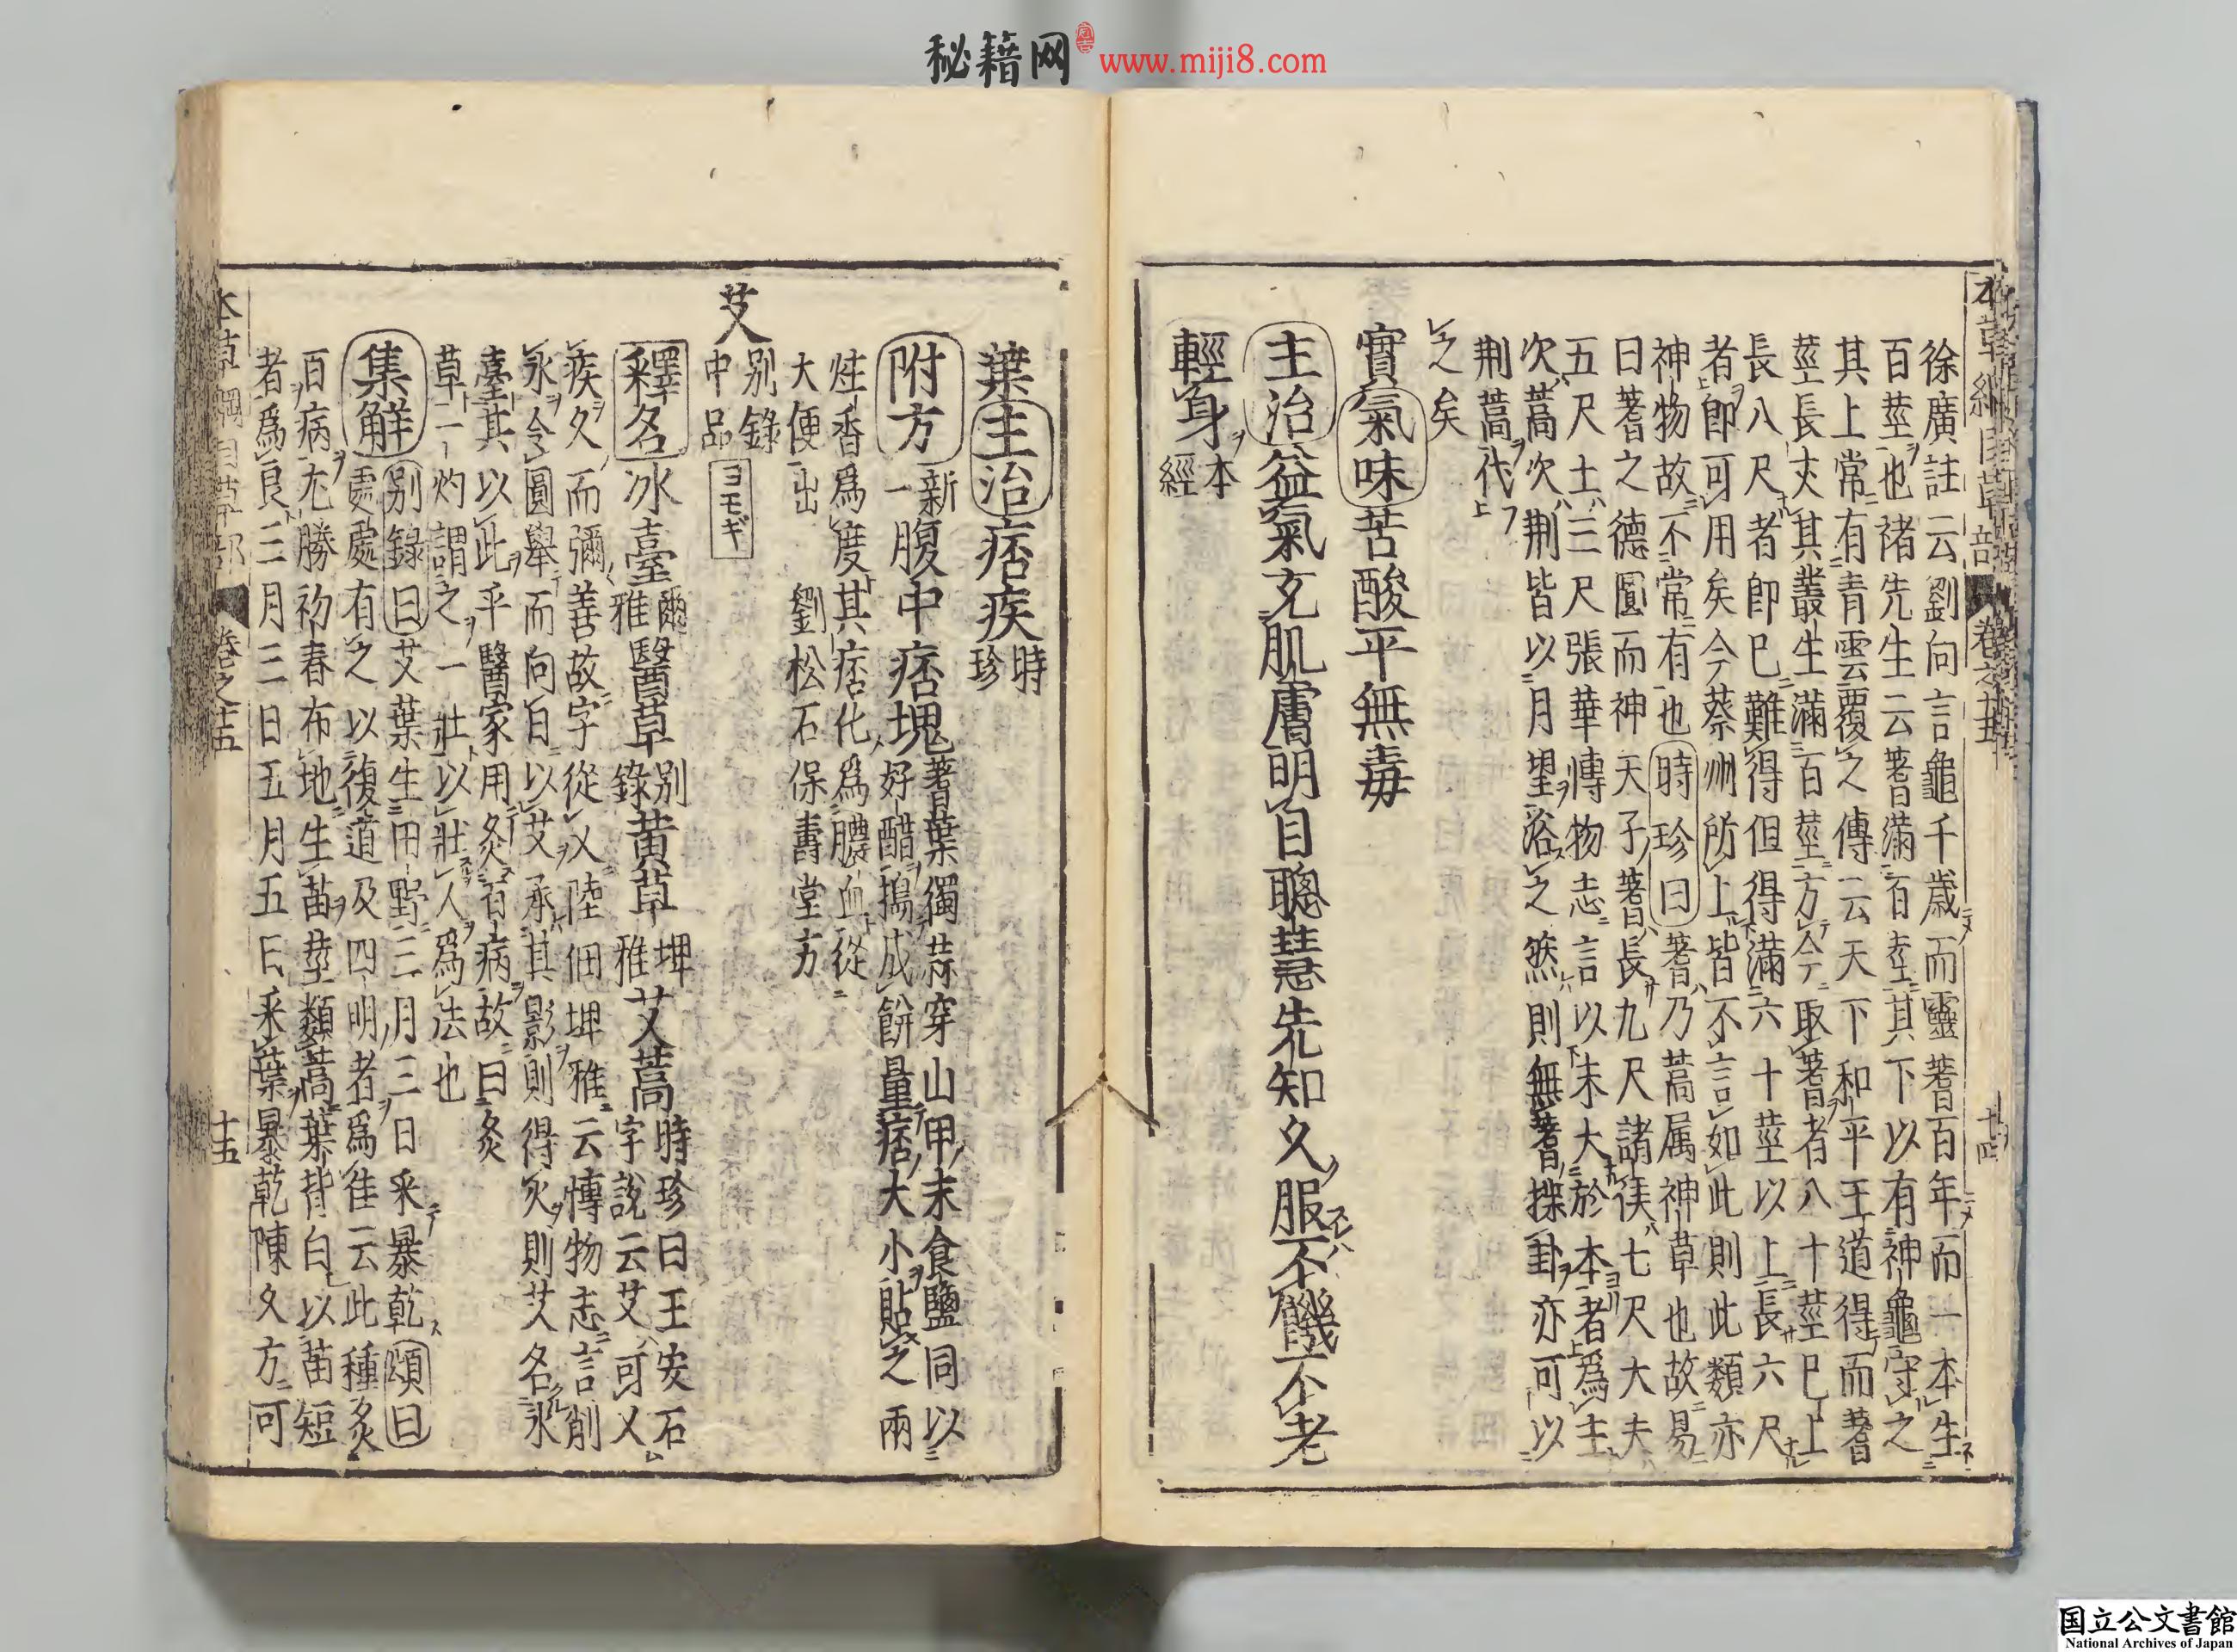 秘籍网 www.miji8.com
本草綱目草部 卷之十五 十四
徐廣註云劉向言龜千歲而靈蓍百年而一本生
百莖也褚先生云蓍滿百莖其下以有神龜守之
其上常有青雲覆之傳云天下和平王道得而蓍
莖長丈其叢生滿百莖方今取蓍者八十莖已上
長八尺者即已難得但得滿六十莖以上長六尺
者即可用矣今蔡州所上皆不言如此則此類亦
神物故不常有也時珍曰蓍乃蒿屬神草也故易
曰蓍之德圓而神天子蓍長九尺諸侯七尺大夫
五尺士三尺張華博物志言以末大於本者爲主
次蒿次荆皆以月望浴之然則無蓍揲卦亦可以
荆蒿代
之矣
實氣味苦酸平無毒
主治益氣充肌膚明目聰慧先知久服不饑不老
輕身本經
葉主治痞疾時珍
附方新一腹中痞塊蓍葉獨蒜穿山甲末食鹽同以
好醋搗成餅量痞大小貼之兩
炷香爲度其痞化爲膿血從
大便出 劉松石保壽堂方
艾別錄中品 ヨモギ
釋名冰臺爾雅醫草別錄黃草埤雅艾蒿時珍曰王安石字說云艾可乂
疾久而彌善故字從乂陸佃埤雅云博物志言削
氷令圓舉而向日以艾承其影則得火則艾名氷
臺其以此乎醫家用灸百病故曰灸
草一灼謂之一壯以壯人爲法也
集解別錄曰艾葉生田野三月三日采暴乾頌曰
處處有之以復道及四明者爲佳云此種灸
百病尤勝初春布地生苗莖類蒿葉背白以苗短
者爲良三月三日五月五日采葉暴乾陳久方可
本草綱目草部 卷之十五 十五
国立公文書館
National Archives of Japan